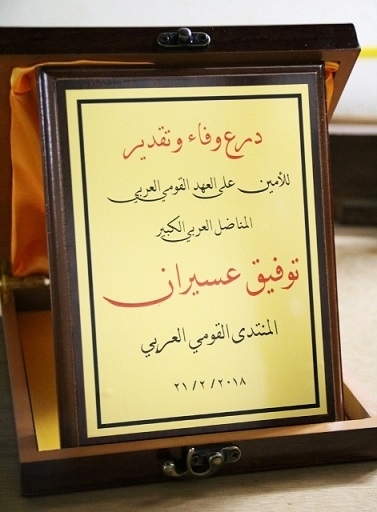 درع وفاء وتقدير
للأمين على العهد القومي العربي
المناضل العربي الكبير
توفيق عسيران
المنتدى القومي العربي
٢١/٢/٢٠١٨